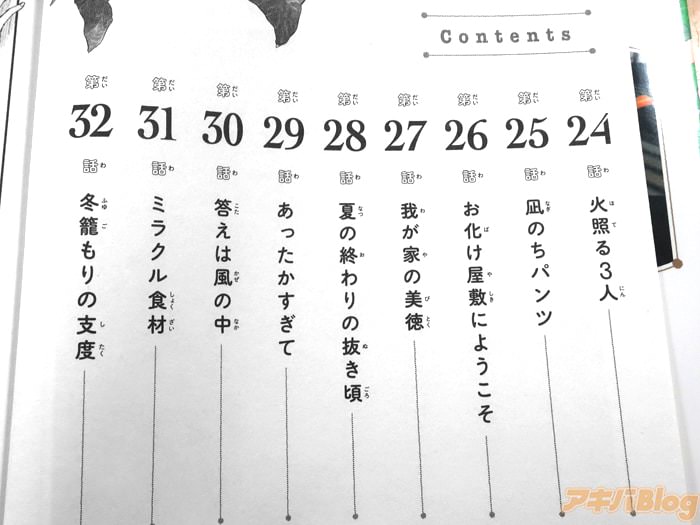 Contents
第24話 火照る3人
第25話 凪のちパンツ
第26話 お化け屋敷にようこそ
第27話 我が家の美徳
第28話 夏の終わりの抜き頃
第29話 あったかすぎて
第30話 答えは風の中
第31話 ミラクル食材
第32話 冬籠もりの支度
アキバBlog